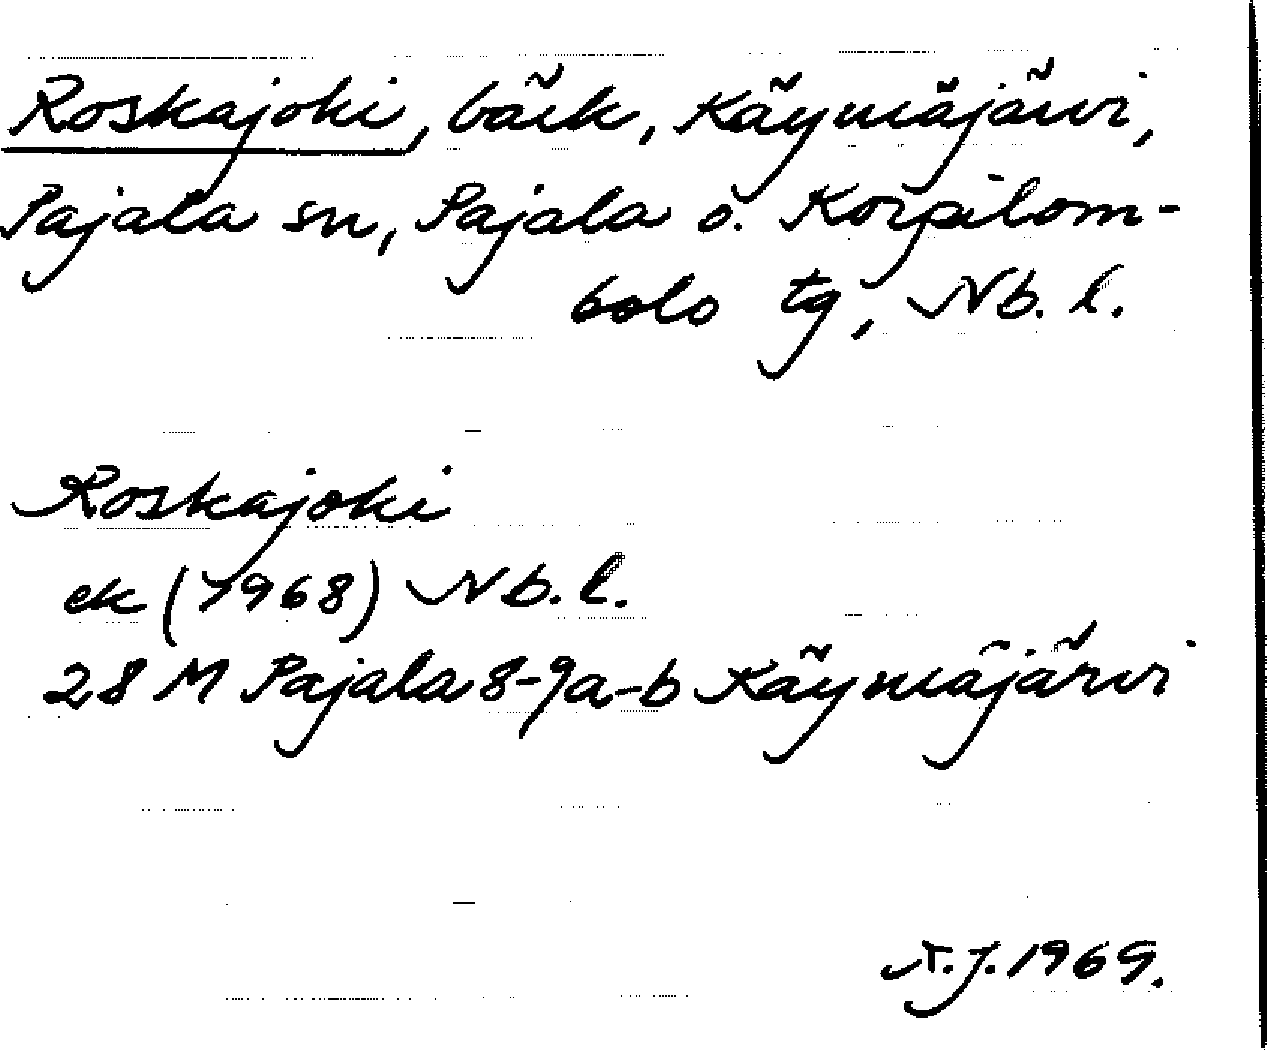 Roskajoki, bäck, Käymäjärvi,
Pajala sn, Pajala o. Korpilom-
bolo tg, Nb. l.
Roskajoki
ek (1968) Nb. l.
28 M Pajala 8-9a-b Käymäjärvi
N.J. 1969.